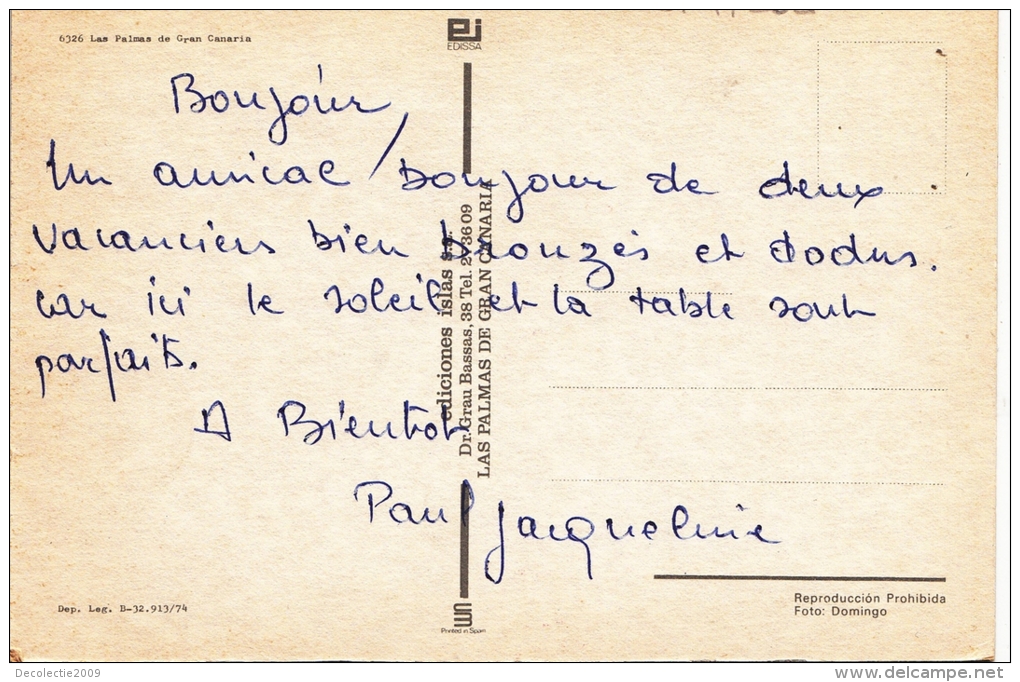 6326 Las Palmas de Gran Canaria
EDISSA
Bonjour,
Un amical bonjour de deux
vacanciers bien bronzés et dodus.
car ici le soleil et la table sont
parfaits.
A Bientot
Paul Jacqueline
ediciones islas s.a.
Dr. Grau Bassas, 38 Tel. 27 36 09
LAS PALMAS DE GRAN CANARIA
Dep. Leg. B-32.913/74
Printed in Spain
Reproducción Prohibida
Foto: Domingo
Decolectie2009
www.delcampe.net